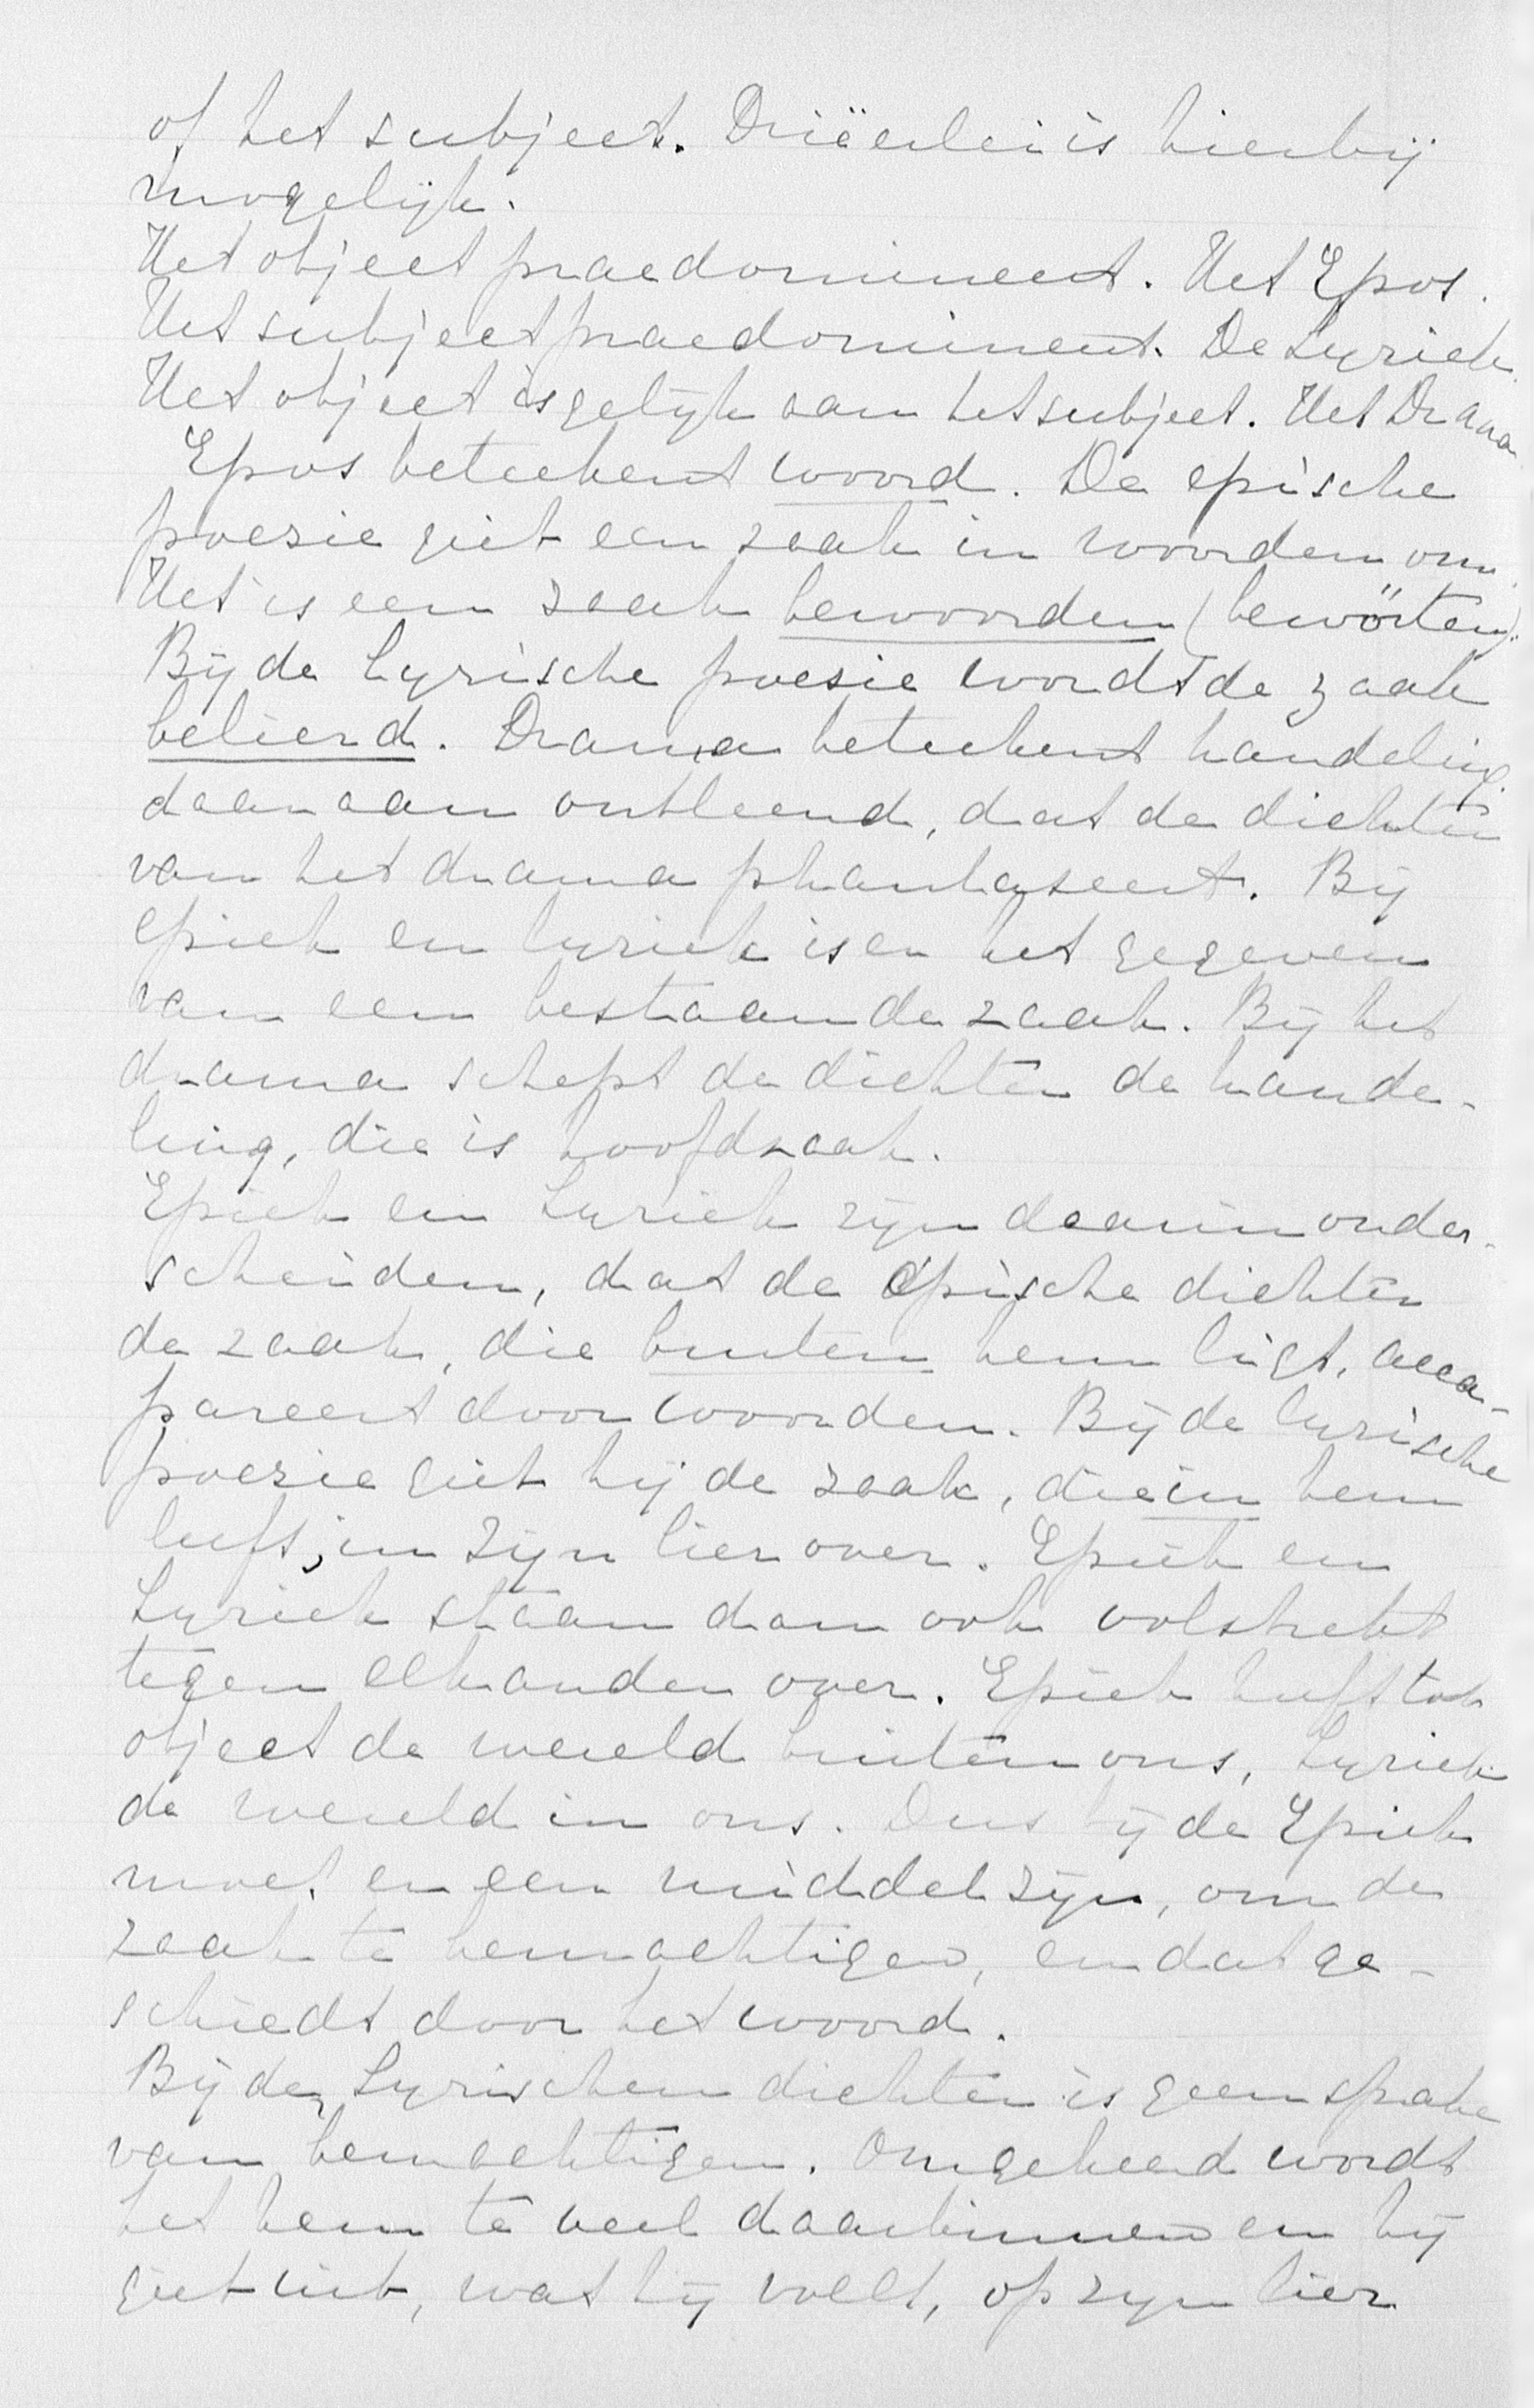 of het subject. Driëerlei is hierbij
mogelijk.
Het object praedomineert. Het Epos.
Het subject praedomineert. De Lyriek.
Het object is gelijk aan het subject. Het Drama
Epos beteekent woord. De epische
poezie giet een zaak in woorden om.
Het is een zaak bewoorden (bewörten).
Bij de Lyrische poesie wordt de zaak
belierd. Drama beteekent handeling,
daaraan ontleend, dat de dichter
van het drama phantaseert. Bij
epiek en lyriek is er het gegeven
van een bestaande zaak. Bij het
drama schept de dichter de hande-
ling, die is hoofdzaak.
Epiek en Lyriek zijn daarin onder-
scheiden, dat de epische dichter
de zaak, die buiten hem ligt, acca-
pareert door woorden. Bij de lyrische
poezie giet hij de zaak, die in hem
leeft, in zijn lier over. Epiek en
Lyriek staan dan ook volstrekt
tegen elkander over. Epiek heeft tot
object de wereld buiten ons, Lyriek
de wereld in ons. Dus bij de Epiek
moet er een middel zijn, om de
zaak te bemachtigen, en dat ge-
schiedt door het woord.
Bij den Lyrischen dichter is geen sprake
van bemachtigen. Omgekeerd wordt
het hem te veel daarbinnen en hij
giet uit, wat hij voelt, op zijn lier